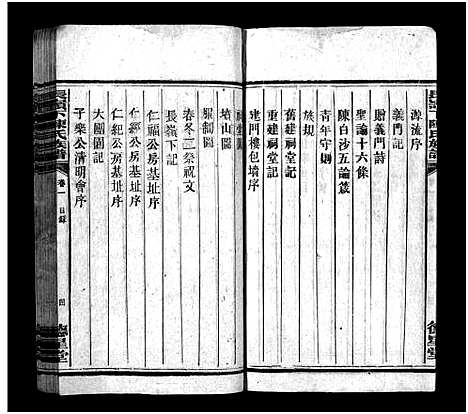 源流序
義門記
贈義門詩
聖諭十六條
陳白沙五論箴
青年守則
舊建祠堂記
重建祠堂記
建門樓包墻序
祠堂圖
培山圖
春冬二祭祝文
長嶺下記
仁福公房基址序
仁經公房基址序
仁紀公房基址序
大團圖記
子榮公清明會序
長嶺下陳氏族譜
卷一
目錄
四
德星堂